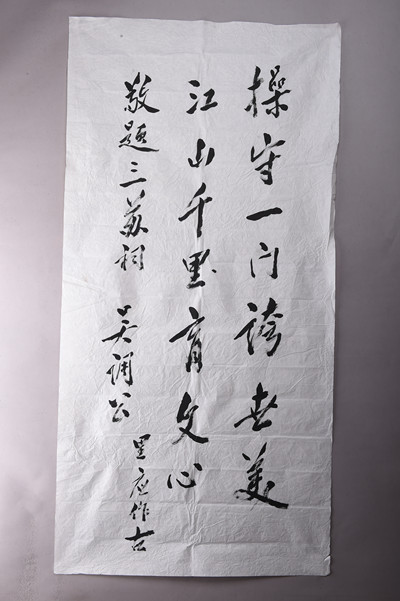 操守一门誇世美
江山千里育文心
敬题三苏祠 吴调公
星应作古